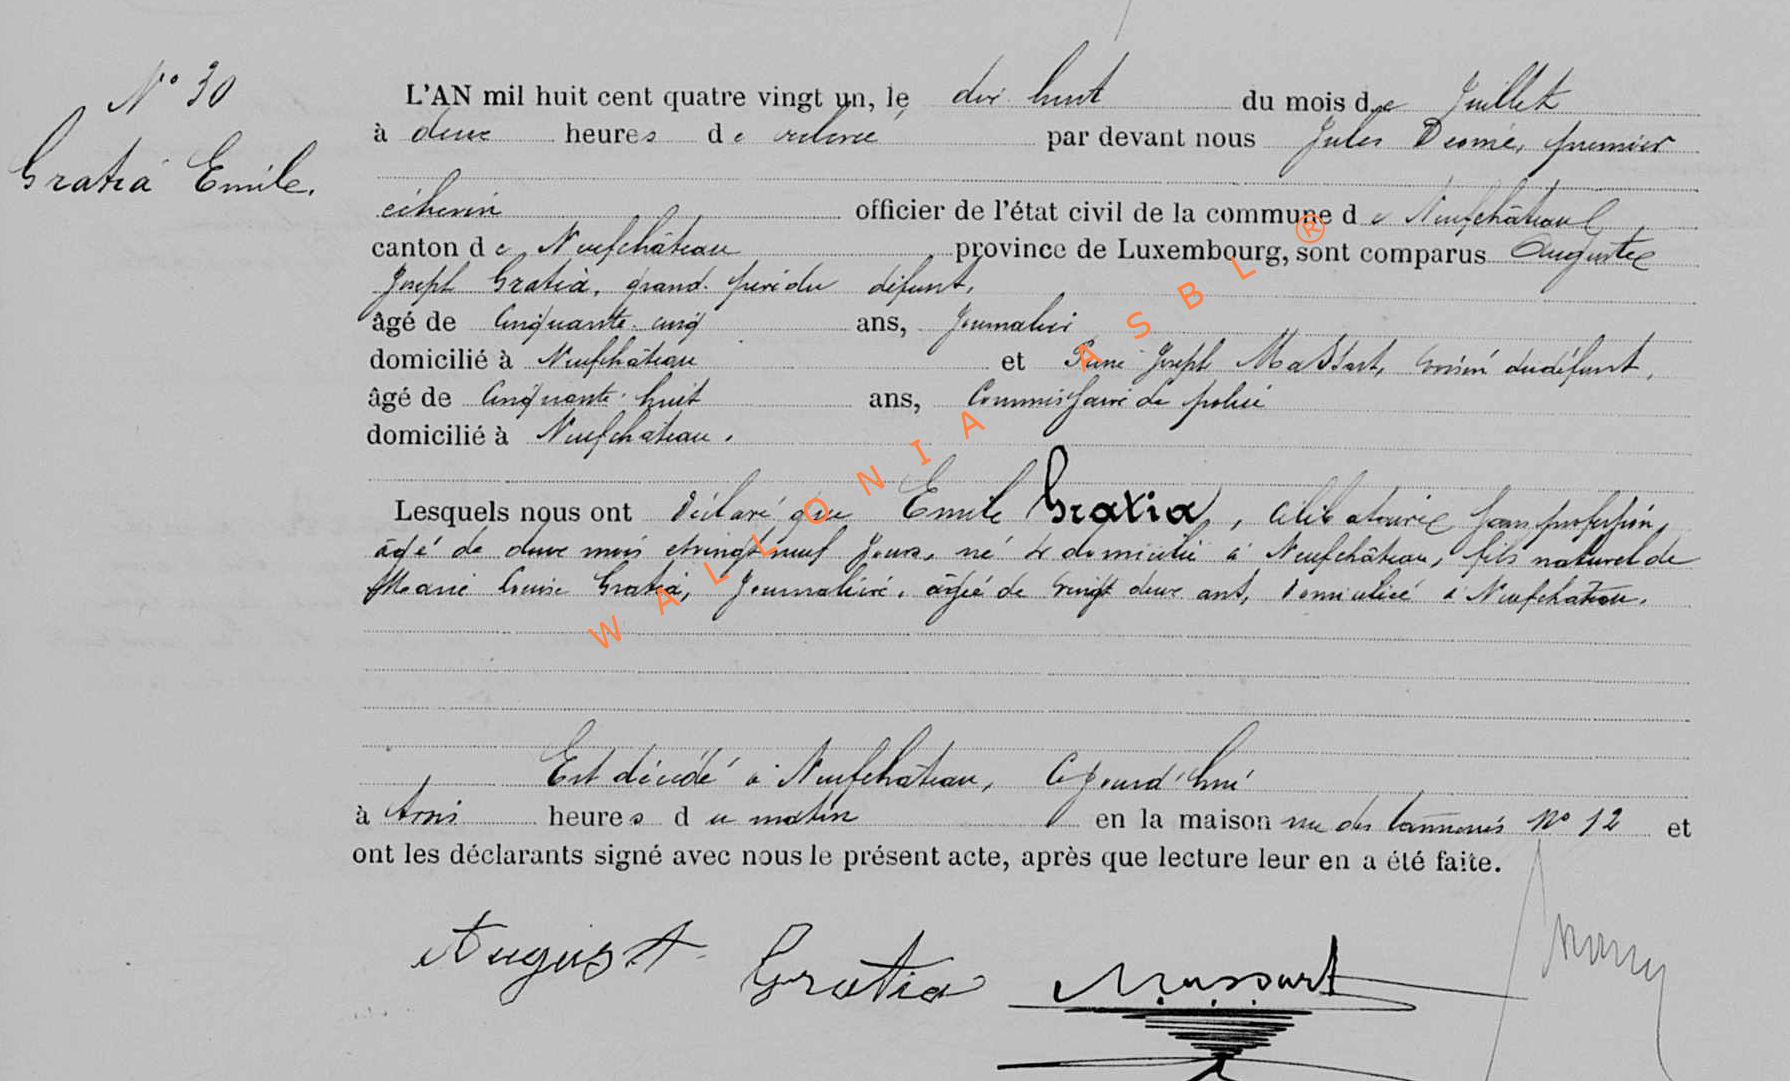 N° 30
Gratia Emile.
L'AN mil huit cent quatre vingt un, le dix huit du mois de Juillet
à deux heures de relevée par devant nous Jules premier
échevin officier de l'état civil de la commune de Neufchâteau
canton de Neufchâteau province de Luxembourg, sont comparus Auguste
Joseph Gratia, grand-père du défunt,
âgé de Cinquante cinq ans, Journalier
domicilié à Neufchâteau et Joseph Massart, voisin du défunt,
âgé de Cinquante huit ans, Commissaire de police
domicilié à Neufchâteau.
Lesquels nous ont déclaré que Emile Gratia, célibataire sans profession,
âgé de deux mois et vingt neuf jours, né & domicilié à Neufchâteau, fils naturel de
Marie Louise Gratia, Journalière, âgée de vingt deux ans, domiciliée à Neufchâteau.
Est décédé à Neufchâteau, Cejourd'hui
à trois heures du matin en la maison rue des Tanneries N° 12 et
ont les déclarants signé avec nous le présent acte, après que lecture leur en a été faite.
August Gratia Massart
WALLONIA ASBL ®